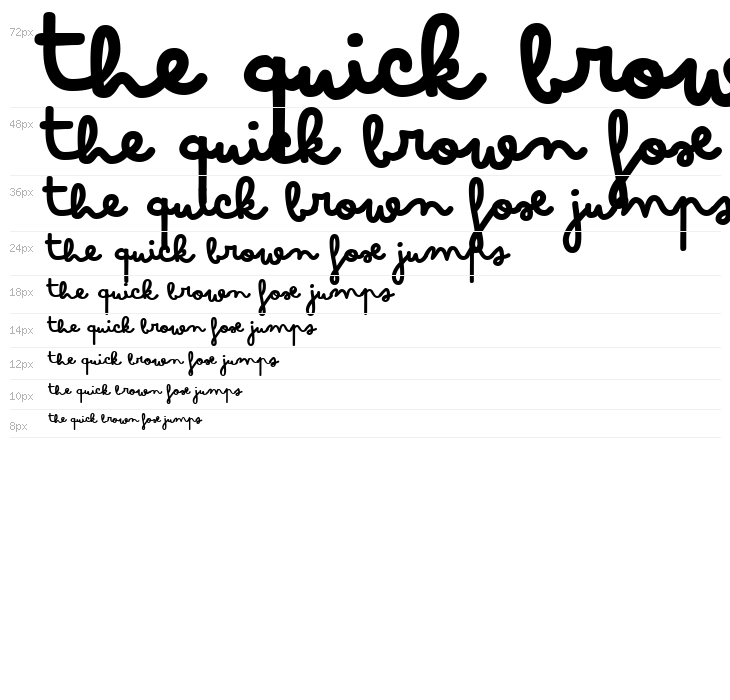 72px the quick brow
48px the quick brown fox
36px the quick brown fox jumps
24px the quick brown fox jumps
18px the quick brown fox jumps
14px the quick brown fox jumps
12px the quick brown fox jumps
10px the quick brown fox jumps
8px the quick brown fox jumps